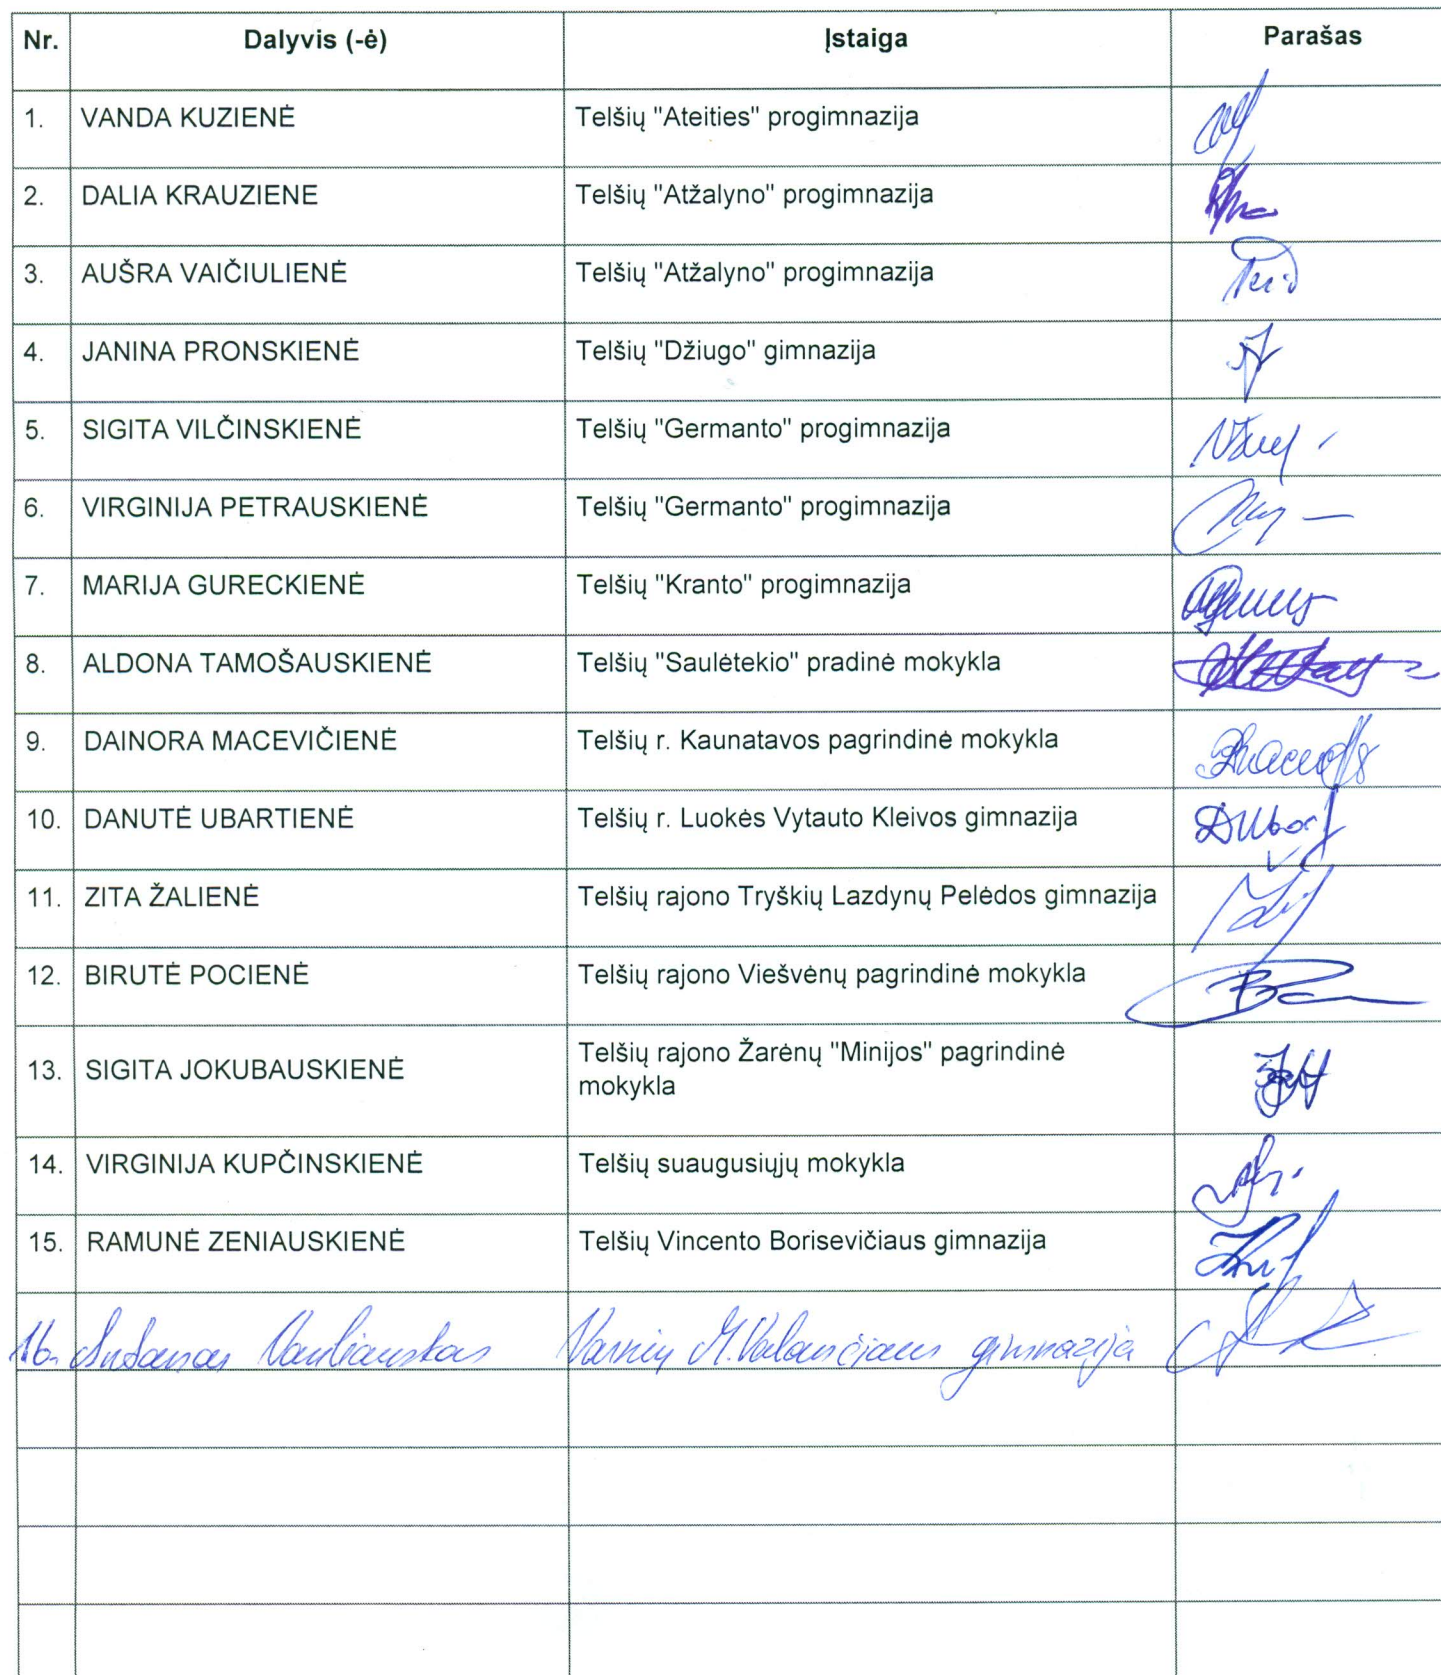 Nr. Dalyvis (-ė) Įstaiga Parašas
1. VANDA KUZIENĖ Telšių "Ateities" progimnazija
2. DALIA KRAUZIENE Telšių "Atžalyno" progimnazija
3. AUŠRA VAIČIULIENĖ Telšių "Atžalyno" progimnazija
4. JANINA PRONSKIENĖ Telšių "Džiugo" gimnazija
5. SIGITA VILČINSKIENĖ Telšių "Germanto" progimnazija
6. VIRGINIJA PETRAUSKIENĖ Telšių "Germanto" progimnazija
7. MARIJA GURECKIENĖ Telšių "Kranto" progimnazija
8. ALDONA TAMOŠAUSKIENĖ Telšių "Saulėtekio" pradinė mokykla
9. DAINORA MACEVIČIENĖ Telšių r. Kaunatavos pagrindinė mokykla
10. DANUTĖ UBARTIENĖ Telšių r. Luokės Vytauto Kleivos gimnazija
11. ZITA ŽALIENĖ Telšių rajono Tryškių Lazdynų Pelėdos gimnazija
12. BIRUTĖ POCIENĖ Telšių rajono Viešvėnų pagrindinė mokykla
13. SIGITA JOKUBAUSKIENĖ Telšių rajono Žarėnų "Minijos" pagrindinė
mokykla
14. VIRGINIJA KUPČINSKIENĖ Telšių suaugusiųjų mokykla
15. RAMUNĖ ZENIAUSKIENĖ Telšių Vincento Borisevičiaus gimnazija
16. Varnių M. Valančiaus gimnazija